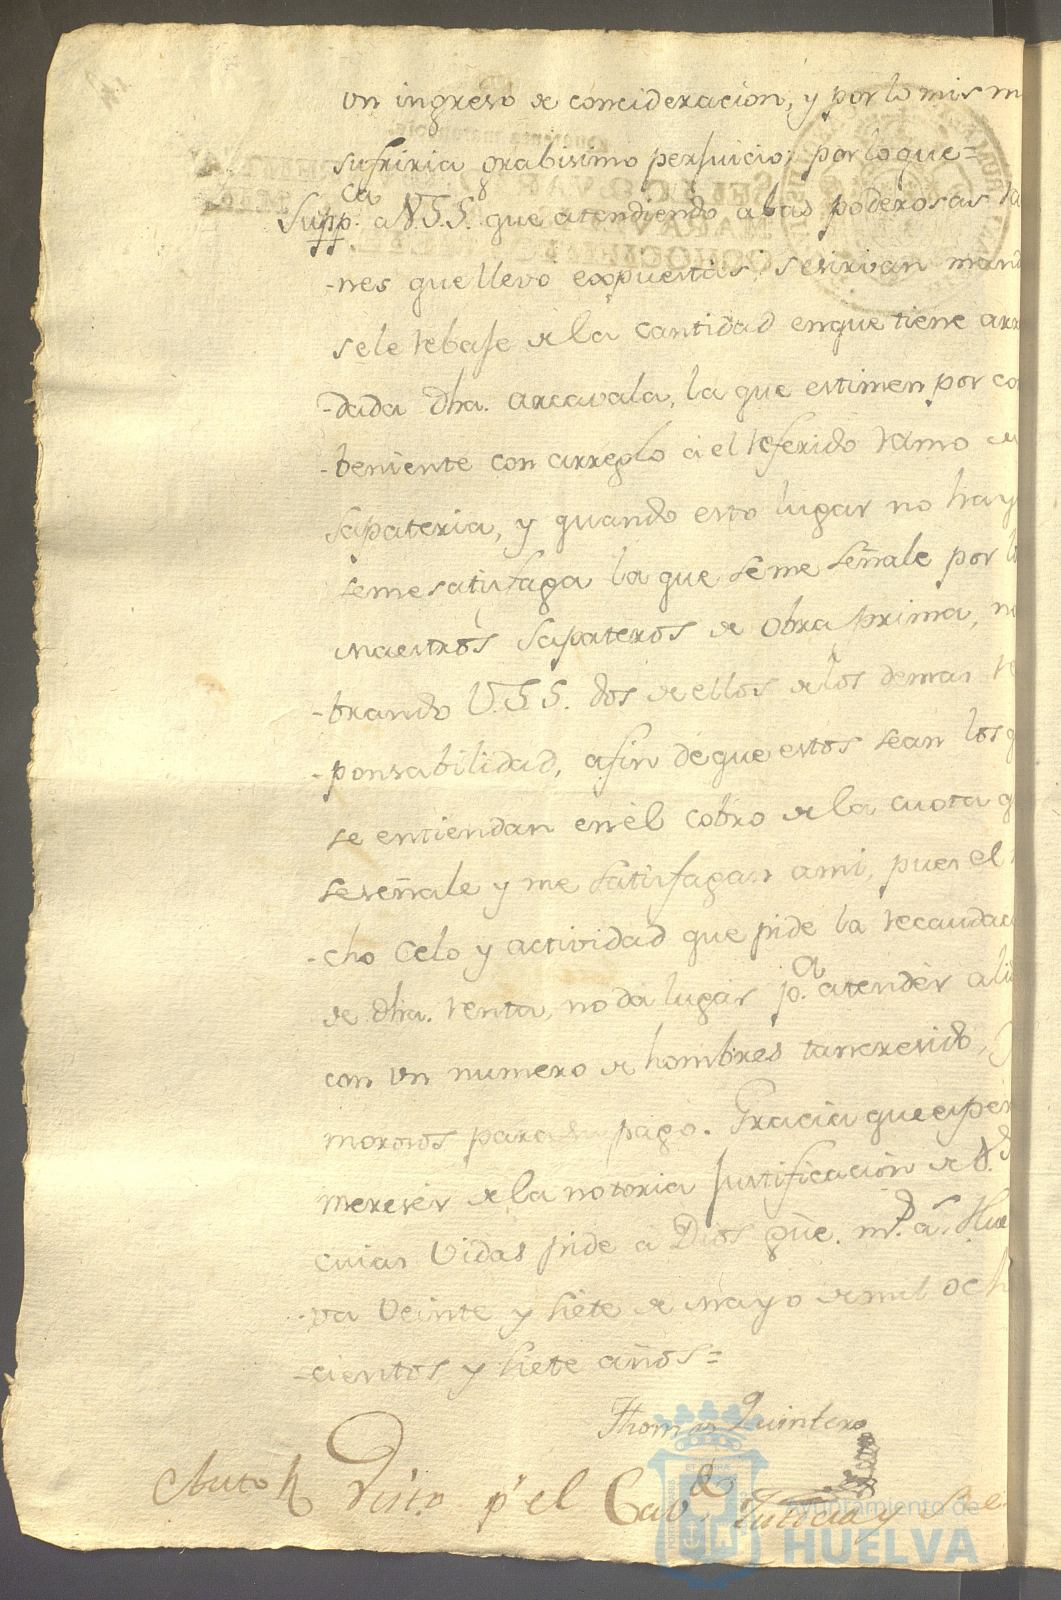 un ingreso de concideracion, y por lo mism
sufriria grabisimo persuicio; por lo que=
Suppca. a V.S.S. que atendiendo a las poderosas ra
-nes que llevo expuestas, se sirvan mand
se le rebaje de la cantidad en que tiene arr
-dada dha. arcavala, la que estimen por co
-beniente con arreglo a el referido ramo de
sapateria, y quando esto lugar no hay
se me satisfaga la que se me señale por l
Maestros Sapateros de obra prima, no
-brando V.S.S. dos de ellos de los demas re
-ponsabilidad, afin de que estos sean los q
se entiendan en el cobro de la cuota q
se señale y me satisfagan a mi, pues el
-cho celo y actividad que pide la recaudac
de dha. renta, no da lugar pa. atender a li
con un numero de hombres tan cresido,
morosos para su pago. Gracia que esper
mereser de la notoria justificacion de V.S
cuias vidas pide a Dios gue. ms. as. Hue
-va Veinte y siete de Mayo de mil och
-cientos y siete años=
Thomas Quintero
Auto Visto pr el Cavdo. Justicia y Re
Ayuntamiento de
HUELVA